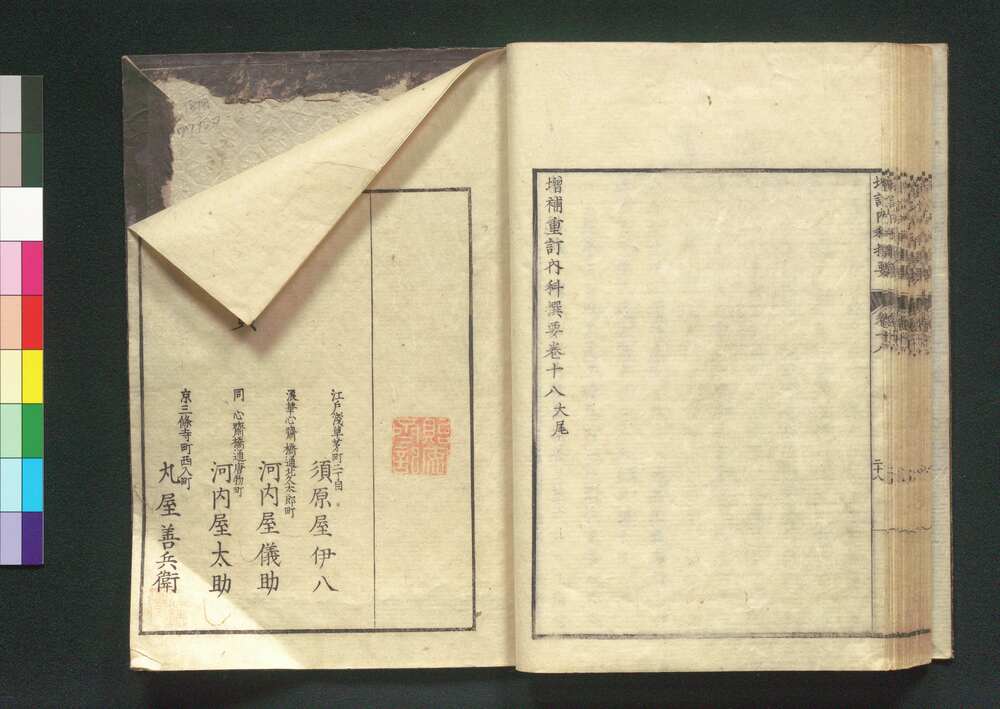 増訂内科撰要
卷十八
二十八
增補重訂内科撰要卷十八大尾
江戸浅草茅町二丁目
須原屋伊八
浪華心齋橋通北久太郎町
河内屋儀助
同 心齋橋通唐物町
河内屋太助
京三條寺町西入町
丸屋善兵衛